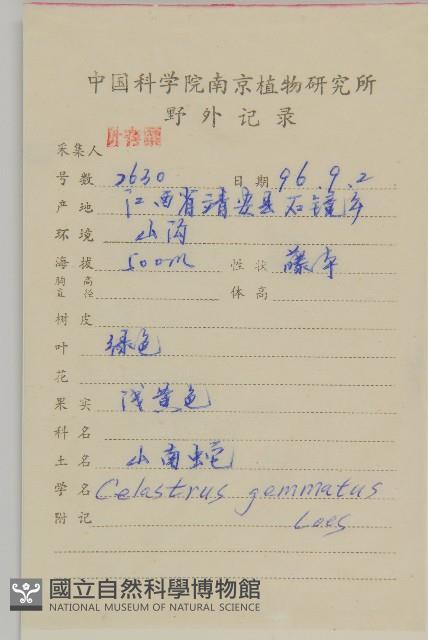 中国科学院南京植物研究所
野外记录
采集人
号数 2630 日期 96.9.2
产地 江西省靖安县石镜
环境 山沟
海拔 500m 性状 藤本
胸高直径 体高
树皮
叶 绿色
花
果实 浅黄色
科名
土名 山南蛇
学名 Celastrus gemmatus
附记 Loes
國立自然科學博物館
NATIONAL MUSEUM OF NATURAL SCIENCE